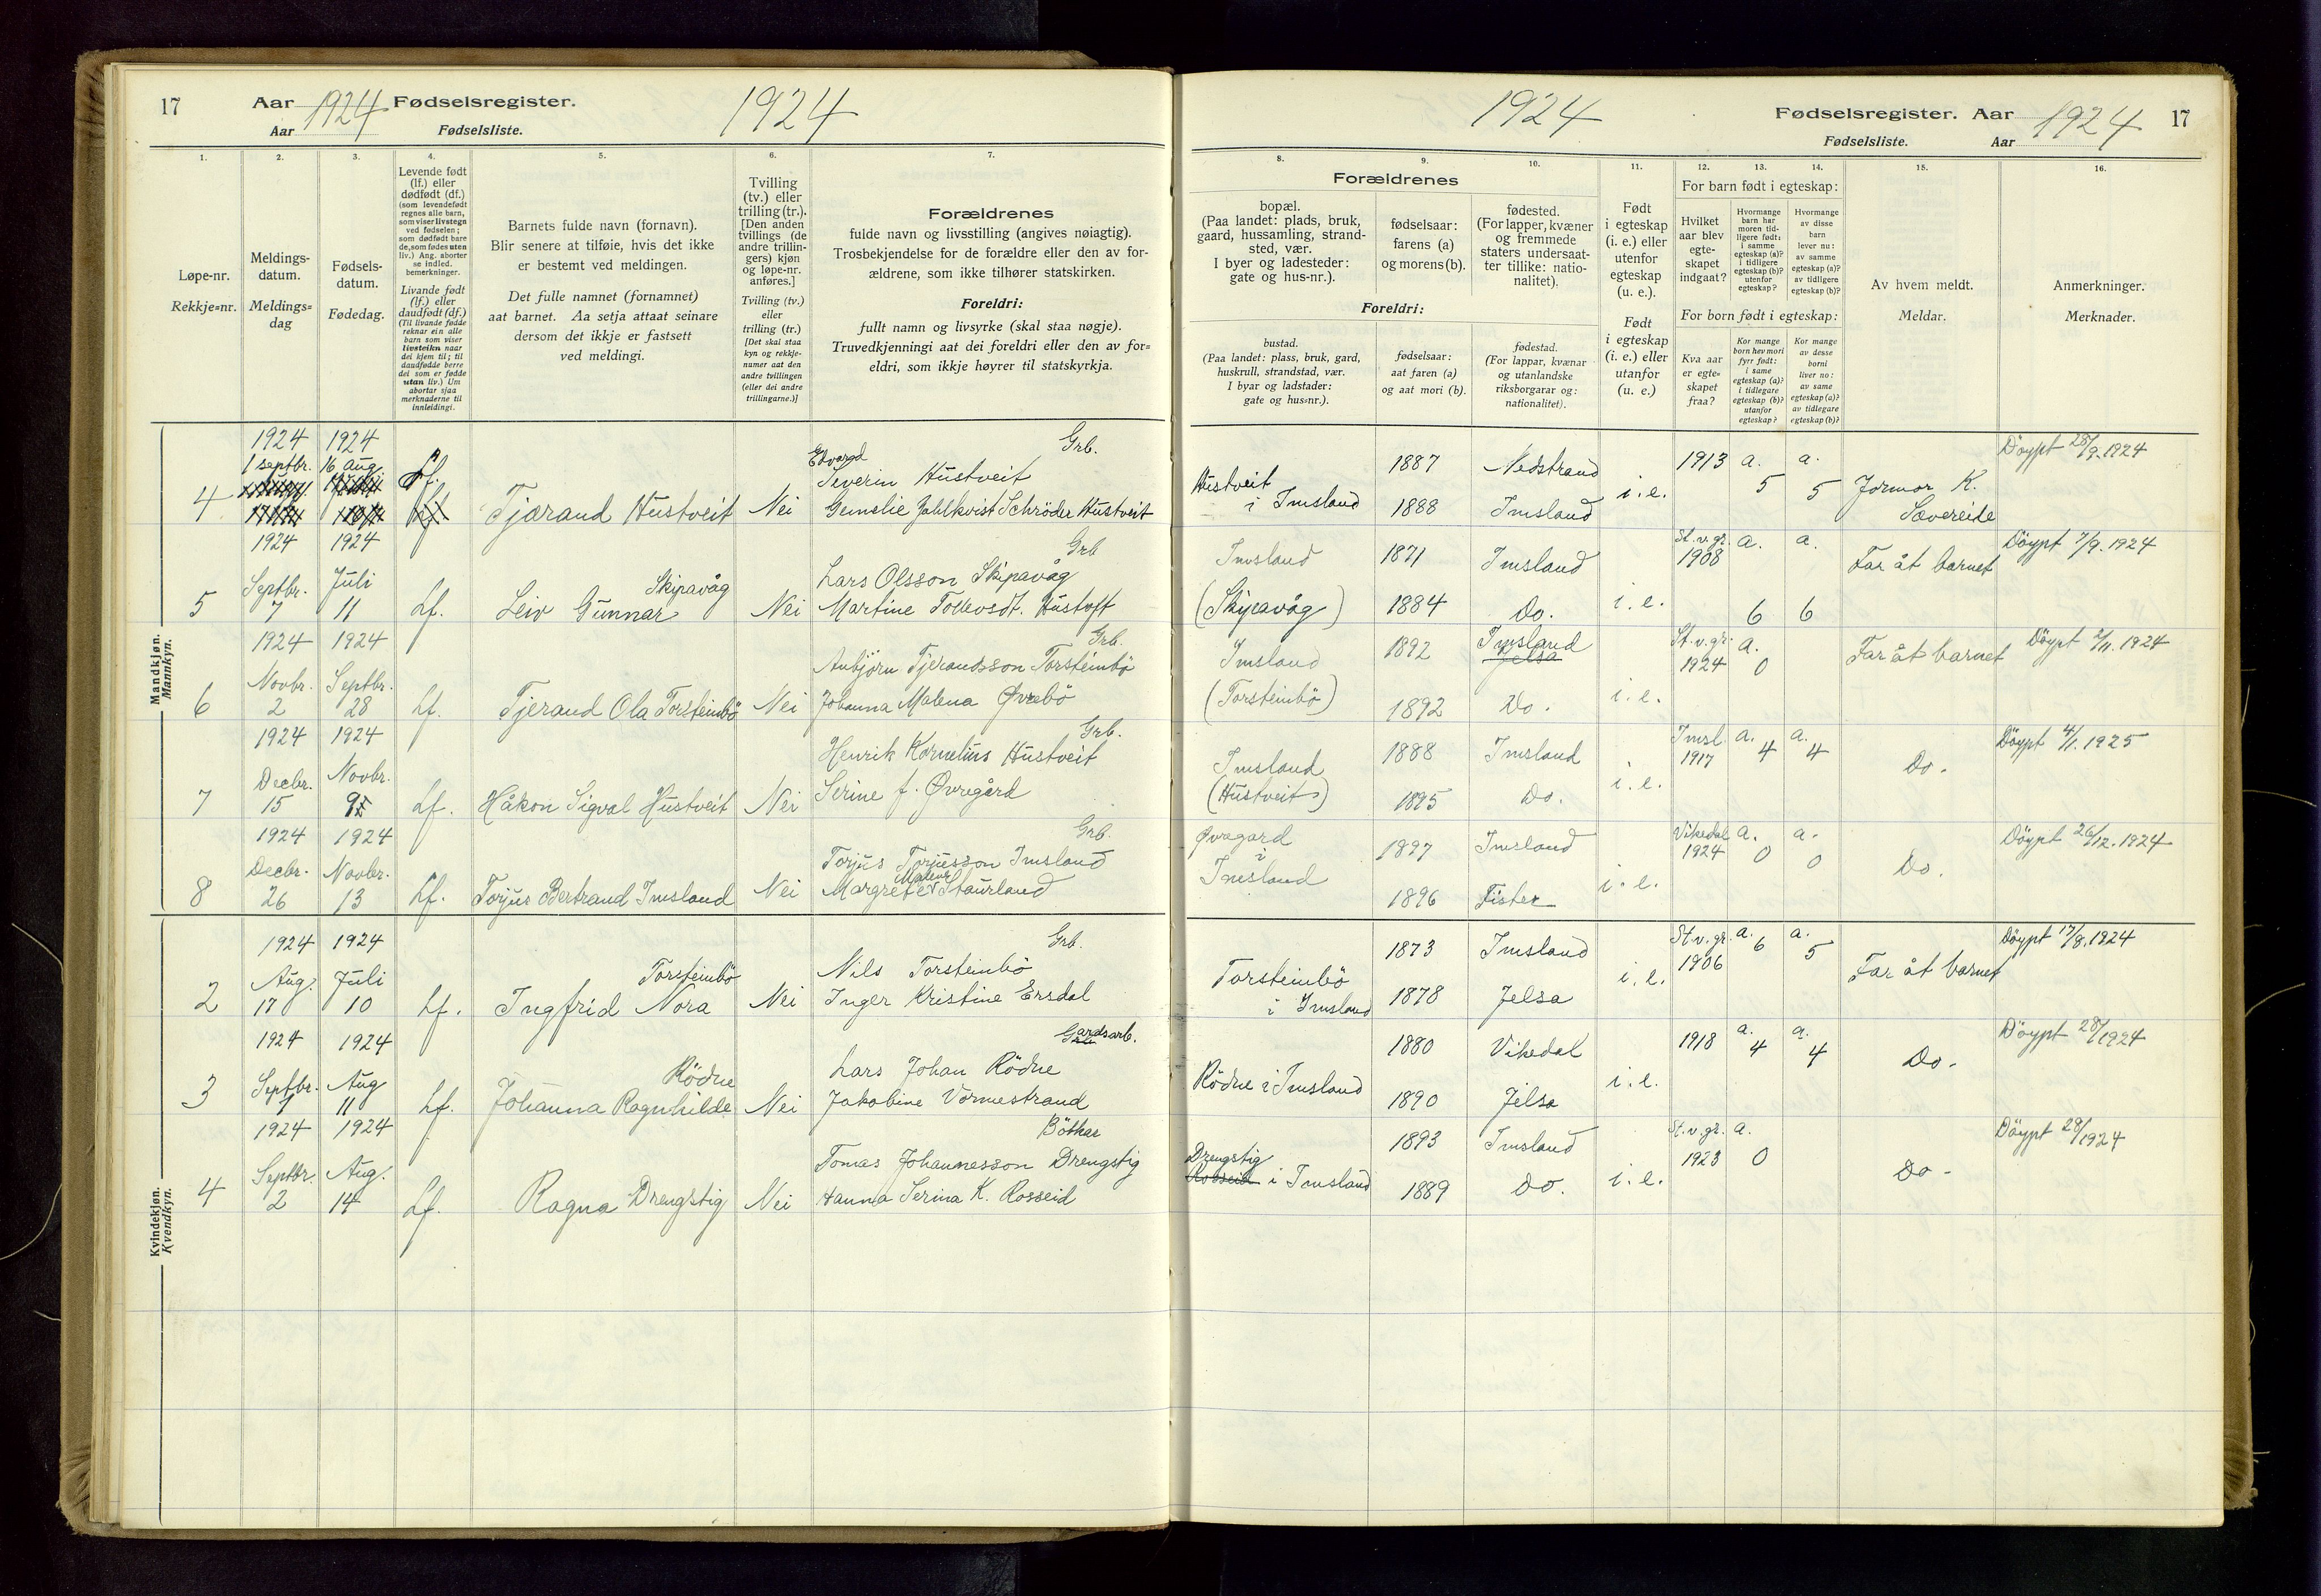 17 Aar 1924 Fødselsregister. 1924
Aar Fødselsliste.
1. 2. 3. 4. 5. 6. 7.
Løpe-nr.
Rekkje=nr.
Meldings-
datum.
Meldings=
dag
Fødsels-
datum.
Fødedag.
Levende født
(lf.) eller
dødfødt (df.)
(som levendefødt
regnes alle barn,
som viser livstegn
ved fødselen;
som dødfødt bare
de, som fødes uten
liv.) Ang. aborter
se indled.
bemerkninger.
Livande født
(lf.) eller
daudfødt (df.)
(Til livande fødde
reknar ein alle
barn som viser
livsteikn naar
dei kjem til; til
daudfødde berre
dei som er fødde
utan liv.) Um
abortar sjaa
merknaderne til
innleidingi.
Barnets fulde navn (fornavn).
Blir senere at tilføie, hvis det ikke
er bestemt ved meldingen.
Det fulle namnet (fornamnet)
aat barnet. Aa setja attaat seinare
dersom det ikkje er fastsett
ved meldingi.
Tvilling
(tv.) eller
trilling (tr.).
[Den anden
tvillings (de
andre trillin-
gers) kjøn
og løpe-nr.
anføres.]
Tvilling (tv.)
eller
trilling (tr.)
[Det skal staa
kyn og rekkje-
numer aat den
andre tvillingen
(eller dei andre
trillingarne.)]
Forældrenes
fulde navn og livsstilling (angives nøiagtig).
Trosbekjendelse for de forældre eller den av for-
ældrene, som ikke tilhører statskirken.
Foreldri:
fullt namn og livsyrke (skal staa nøgje).
Truvedkjenningi aat dei foreldri eller den av for=
eldri, som ikkje høyrer til statskyrkja.
Mandkjøn.
Mannkyn.
1924 1924 Grb.
1 septbr. 16 aug. Lf. Edvard
Severin Hustveit
4 Tjærand Hustveit Nei Gemelie Jahlkvist Schröder Hustveit
1924 1924 Grb
Septbr. Juli Skipavåg Lars Olsson Skipavåg
5 7 11 Lf. Leiv Gunnar Nei Martine Tollevsdt. Hustoft
1924 1924 Grb.
Novbr. Septbr. Anbjörn Tjerandsson Torsteinbö
6 2 28 Lf. Tjerand Ola Torsteinbö Nei Johanna Malena Øvrebö
1924 1924 Grb.
Decbr. Novbr. Henrik Kornelius Hustveit
7 15 Lf. Håkon Sigval Hustveit Nei Serine f. Øvregård
1924 1924 Grb.
Decbr. Novbr. Torjus Torjusson Imsland
8 26 13 Lf. Torjus Bertrand Imsland Nei Margrete Staurland
Kvindekjøn.
Kvendkyn.
1924 1924 Grb.
Aug. Juli Torsteinbö Nils Torsteinbö
2 17 10 Lf. Ingfrid Nora Nei Inger Kristine Ersdal
1924 1924 Gardsarb.
Septbr. Aug Rödne Lars Johan Rödne
3 11 Lf. Johanna Ragnhilde Nei Jakobine Vormestrand
1924 1924 Böther
Septbr. Aug. Tomas Johannesson Drengstig
4 2 14 Lf. Ragna Drengstig Nei Hanna Serina K. Rosseid
1924 Fødselsregister. Aar 1924 17
Fødselsliste. Aar
8. 9. 10. 11. 12. 13. 14. 15. 16.
Forældrenes
bopæl.
(Paa landet: plads, bruk,
gaard, hussamling, strand-
sted, vær.
I byer og ladesteder:
gate og hus-nr.).
fødselsaar:
farens (a)
og morens (b).
fødested.
(For lapper, kvæner
og fremmede
staters undersaat-
ter tillike: natio-
nalitet).
Foreldri:
bustad.
(Paa landet: plass, bruk, gard,
huskrull, strandstad, vær.
I byar og ladstader:
gate og hus=nr.).
fødselsaar:
aat faren (a)
og aat mori (b).
fødestad.
(For lappar, kvænar
og utanlandske
riksborgarar og:
nationalitet).
Født
i egteskap
(i. e.) eller
utenfor
egteskap
(u. e.).
Født
i egteskap
(i. e.) eller
utanfor
(u. e.)
For barn født i egteskap:
Hvilket
aar blev
egte-
skapet
indgaat?
Hvormange
barn har
moren tid-
ligere født:
i samme
egteskap (a)?
i tidligere
egteskap (b)?
utenfor
egteskap?
Hvormange
av disse
barn
lever nu:
av samme
egteskap (a)?
av tidligere
egteskap (b)?
For born født i egteskap:
Kva aar
er egte=
skapet
fraa?
Kor mange
born hev mori
fyrr født:
i same
egteskap (a)?
i tidlegare
egteskap (b)?
utanfor
egteskap?
Kor mange
av desse
borni
liver no:
av same
egteskap (a)?
av tidlegare
egteskap (b)?
Av hvem meldt.
Meldar.
Anmerkninger.
Merknader.
Hustveit 1887 Nedstrand 1913 a. a. Döypt 28/9.1924
i Imsland 1888 Imsland i.e. 5 5 Jormor K.
Sævereide
Imsland 1871 Imsland St.v.gr. 1908 a. a. Far åt barnet Döypt 7/9.1924
(Skipavåg) 1884 Do. i.e. 6 6
Imsland 1892 Imsland Jelsa St.v.gr. 1924 a. 0 Far åt barnet Döypt 2/11.1924
(Torsteinbö) 1892 Do. i.e.
Imsland 1888 Imsland Imsl. 1917 a. 4 a. 4 Do. Döypt 4/1.1925
(Hustveit) 1895 Do. i.e.
Øvregard 1897 Imsland Vikedal 1924 a. 0 a. 0 Do. Döypt 26/12.1924
i
Imsland 1896 Fister i.e.
Torsteinbö 1873 Imsland St.v.gr. 1906 a. 6 a. 5 Far åt barnet Döypt 17/8.1924
i Imsland 1878 Jelsa i.e.
Rödne i Imsland 1880 Vikedal 1918 a. 4 a. 4 Do. Döypt 28/1924
1890 Jelsa i.e.
Drengstig 1893 Imsland St.v.gr. 1923 a. 0 Do. Döypt 28/1924
Rosseid i Imsland 1889 Do. i.e.